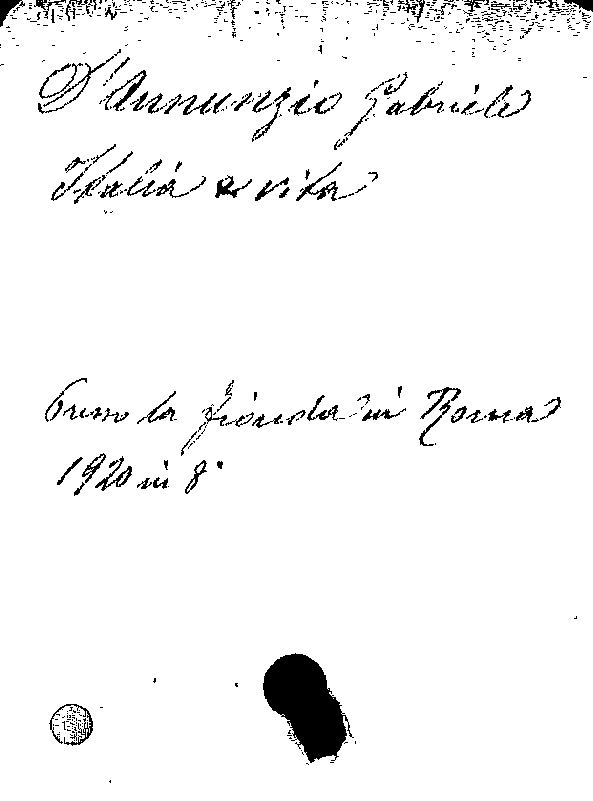 D'Annunzio Gabriele
Italia e vita
Presso la Fionda in Roma
1920 in 8°